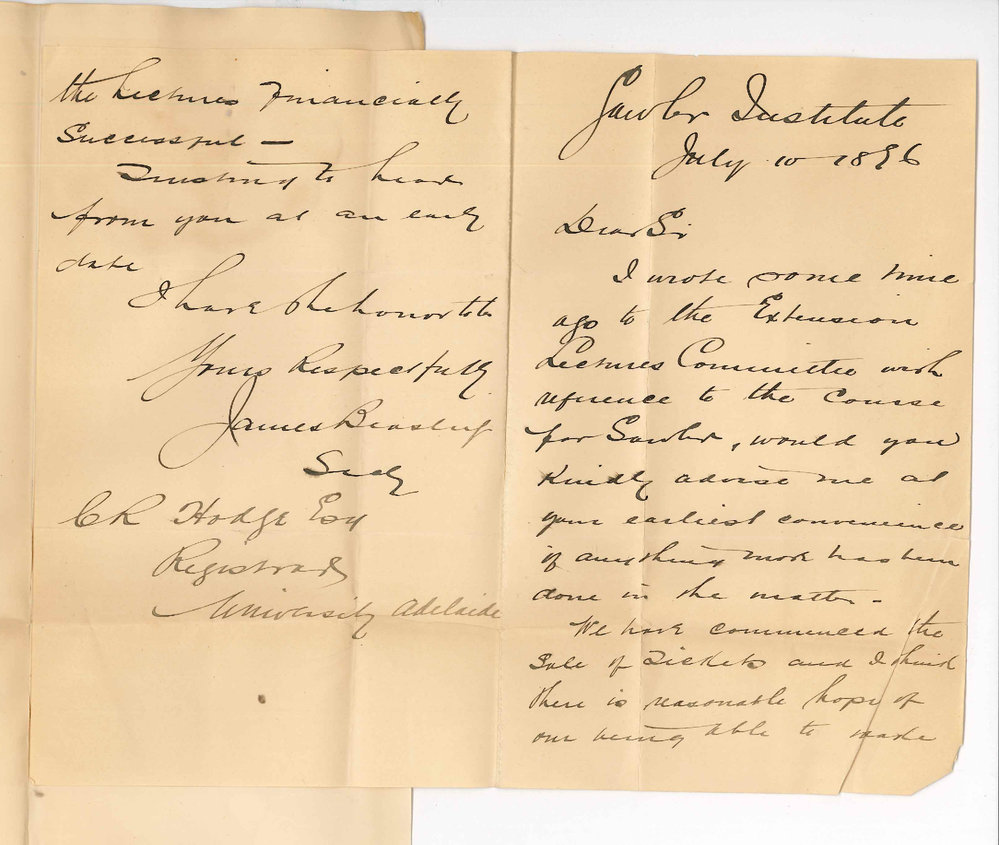 Gawler Institute
July 10 1896
Dear Sir
I wrote some time
ago to the Extension
Lectures Committee with
reference to the Course
for Gawler, would you
Kindly advise me at
your earliest convenience
if anything more has been
done in the matter -
We have commenced the
Sale of Tickets and I think
there is reasonable hope of
our being able to make
the Lectures Financially
Successful -
Trusting to hear
from you at an early
date
I have the honor to be
Yours Respectfully
James
Secty
C R Hodge Esq
Registrar
University Adelaide